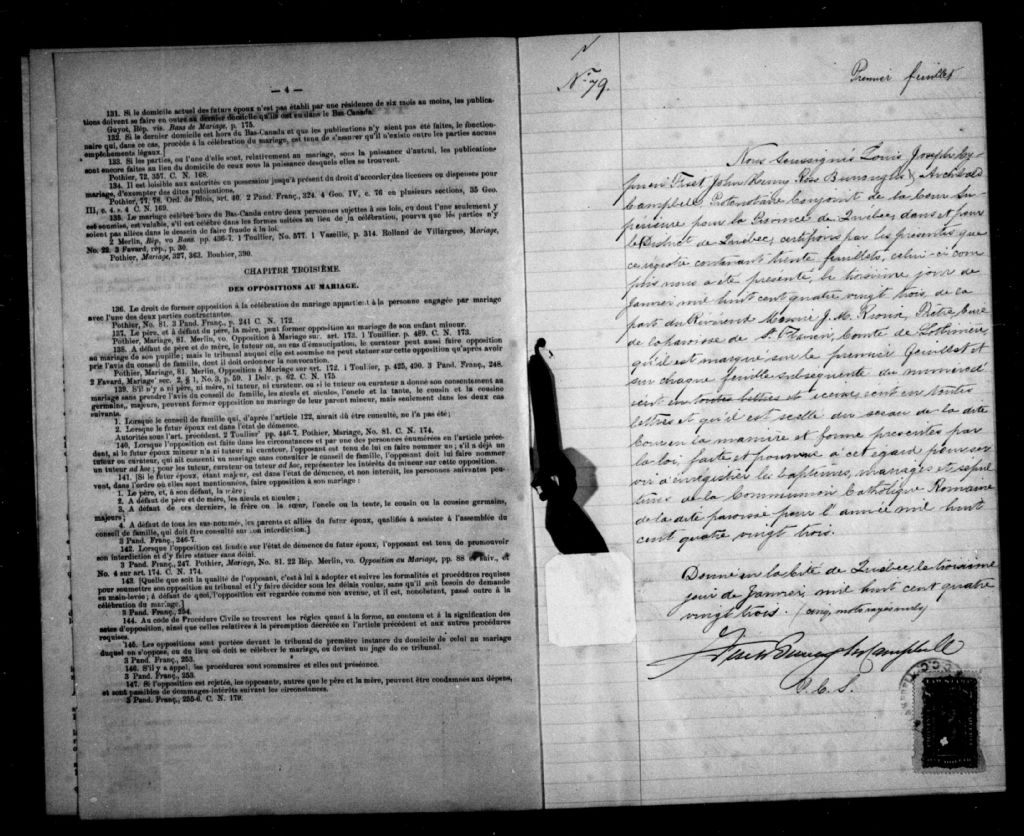 — 4 —
131. Si le domicile actuel des futurs époux n'est pas établi par une résidence de six mois au moins, les publica-
tions doivent se faire en outre au dernier domicile qu'ils ont eu dans le Bas-Canada.
Guyot, Rép. vis. Bans de Mariage, p. 175.
132. Si le dernier domicile est hors du Bas-Canada et que les publications n'y aient pas été faites, le fonction-
naire qui, dans ce cas, procède à la célébration du mariage, est tenu de s'assurer qu'il n'existe entre les parties aucuns
empêchements légaux.
133. Si les parties, ou l'une d'elle sont, relativement au mariage, sous la puissance d'autrui, les publications
sont encore faites au lieu du domicile de ceux sous la puissance desquels elles se trouvent.
Pothier, 72, 357. C. N. 168.
134. Il est loisible aux autorités en possession jusqu'à présent du droit d'accorder des licences ou dispenses pour
mariage, d'exempter des dites publications.
Pothier, 77, 78. Ord. de Blois, art. 40. 2 Pand. Franç., 324. 4 Geo. IV, c. 76 en plusieurs sections, 35 Geo.
III, c. 4. s 4 C. N. 169.
135. Le mariage célébré hors du Bas-Canada entre deux personnes sujettes à ses lois, ou dont l'une seulement y
est soumise, est valable, s'il est célébré dans les formes usitées au lieu de la célébration, pourvu que les parties n'y
soient pas allées dans le dessein de faire fraude à la loi.
2 Merlin, Rép. vo Bans. pp. 436-7. 1 Toullier, No. 577. 1 Vazeille, p. 314. Rolland de Villargues, Mariage,
No. 22. 3 Favard, rép., p. 30.
Pothier, Mariage, 327, 363. Bouhier, 390.
CHAPITRE TROISIÈME.
DES OPPOSITIONS AU MARIAGE.
136. Le droit de former opposition à la célébration du mariage appartient à la personne engagée par mariage
avec l'une des deux parties contractantes.
Pothier, No. 81. 3 Pand. Franç., p. 241 C. N. 172.
137. Le père, et à défaut de père, la mère, peut former opposition au mariage de son enfant mineur.
Pothier, Mariage, 81. Merlin, vo. Opposition à Mariage sur. art. 172. 1 Touillier. p. 489. C. N. 173.
138. A défaut de père et de mère, le tuteur ou, en cas d'émancipation, le curateur peut aussi faire opposition
au mariage de son pupille; mais le tribunal auquel elle est soumise ne peut statuer sur cette opposition qu'après avoir
pris l'avis du conseil de famille, dont il doit ordonner la convocation.
Pothier, Mariage, 81. Merlin, Opposition à Mariage sur art. 172. 1 Toullier, p. 425, 490. 3 Pand. Franç., 248.
2 Favard, Mariage sec. 2, § 1, No. 3, p. 59. 1 Delv. p. 62. C. N. 175
139. S'il n'y a ni père, ni mère, ni tuteur, ni curateur, ou si le tuteur ou curateur a donné son consentement au
mariage sans prendre l'avis du conseil de famille, les aïeuls et aïeules, l'oncle et la tante, le cousin et la cousine
germains, majeurs, peuvent former opposition au mariage de leur parent mineur, mais seulement dans les deux cas
suivants.
1. Lorsque le conseil de famille qui, d'après l'article 122, aurait dû être consulté, ne l'a pas été;
2. Lorsque le futur époux est dans l'état de démence.
Autorités sous l'art. précédent. 2 Toullier pp. 446-7. Pothier, Mariage, No. 81. C. N. 174.
140. Lorsque l'opposition est faite dans les circonstances et par une des personnes énumérées en l'article précé-
dent, si le futur époux mineur n'a ni tuteur ni curateur, l'opposant est tenu de lui en faire nommer un; s'il a déjà un
tuteur ou curateur, qui ait consenti au mariage sans consulter le conseil de famille, l'opposant doit lui faire nommer
un tuteur ad hoc; pour les tuteur, curateur ou tuteur ad hoc, représenter les intérêts du mineur sur cette opposition.
141. [Si le futur époux, étant majeur, est dans l'état de démence, et non interdit, les personnes suivantes peu-
vent, dans l'ordre où elles sont mentionnées, faire opposition à son mariage:
1. Le père, et, à son défaut, la mère;
2. A défaut de père et de mère, les aïeuls et aïeules;
3. A défaut de ces derniers, le frère ou la sœur, l'oncle ou la tante, le cousin ou la cousine germains,
majeurs;
4. A défaut de tous les sus-nommés, les parents et alliés du futur époux, qualifiés à assister à l'assemblée du
conseil de famille, qui doit être consulté sur son interdiction.]
3 Pand. Franç., 246-7.
142. Lorsque l'opposition est fondée sur l'état de démence du futur époux, l'opposant est tenu de promouvoir
son interdiction et d'y faire statuer sans délai.
3 Pand. Franç., 247. Pothier, Mariage, No. 81. 22 Rép. Merlin, vo. Opposition au Mariage, pp. 88 et suiv., et
No. 4 sur art. 174. C. N. 174.
143. [Quelque soit la qualité de l'opposant, c'est à lui à adopter et suivre les formalités et procédures requises
pour soumettre son opposition au tribunal et l'y faire décider sous les délais voulus, sans qu'il soit besoin de demande
en main-levée; à défaut de quoi, l'opposition est regardée comme non avenue, et il est, nonobstant, passé outre à la
célébration du mariage.]
3 Pand. Franç., 254.
144. Au code de Procédure Civile se trouvent les règles quant à la forme, au contenu et à la signification des
actes d'opposition, ainsi que celles relatives à la péremption décrétée en l'article précédent et aux autres procédures
requises.
145. Les oppositions sont portées devant le tribunal de première instance du domicile de celui au mariage
duquel on s'oppose, ou du lieu où doit se célébrer le mariage, ou devant un juge de ce tribunal.
3 Pand. Franç., 253.
146. S'il y a appel, les procédures sont sommaires et elles ont préséance.
3 Pand. Franç., 253.
147. Si l'opposition est rejetée, les opposants, autres que le père et la mère, peuvent être condamnés aux dépens,
et sont passibles de dommages-intérêts suivant les circonstances.
3 Pand. Franç., 255-6. C. N. 179.
No 79.
Premier feuillet
Nous soussignés Louis Joseph Cy-
prien Fiset, John Henry Ross Burroughs & Archibald
Campbell, Protonotaire Conjoint de la Cour Su-
périeure pour la Province de Québec, dans et pour
le District de Québec, certifions par les présentes que
ce registre contenant trente feuillets, celui-ci com
pris nous a été présenté, le troisième jour de
Janvier mil huit cent quatre vingt trois de la
part du Révérend Messire J. M. Rioux, Prêtre Curé
de la paroisse de St. Flavien, Comté de Lotbinière,
qu'il est marqué sur le premier feuillet et
sur chaque feuillet subséquent du numéro
écrit en toutes lettres et icelui, écrit en toutes
lettres et qu'il est scellé du sceau de la dite
Cour en la manière et forme prescrites par
la loi, faite et pourvue à cet égard pour ser
vir à enrégistrer les baptêmes, mariages et sépul
tures de la Communion Catholique Romaine
de la dite paroisse pour l'année mil huit
cent quatre vingt trois.
Donné en la Cité de Québec, le troisième
jour de Janvier, mil huit cent quatre
vingt trois. (cinq mots rayés nuls)
Fiset Burroughs Campbell
P. C. S.